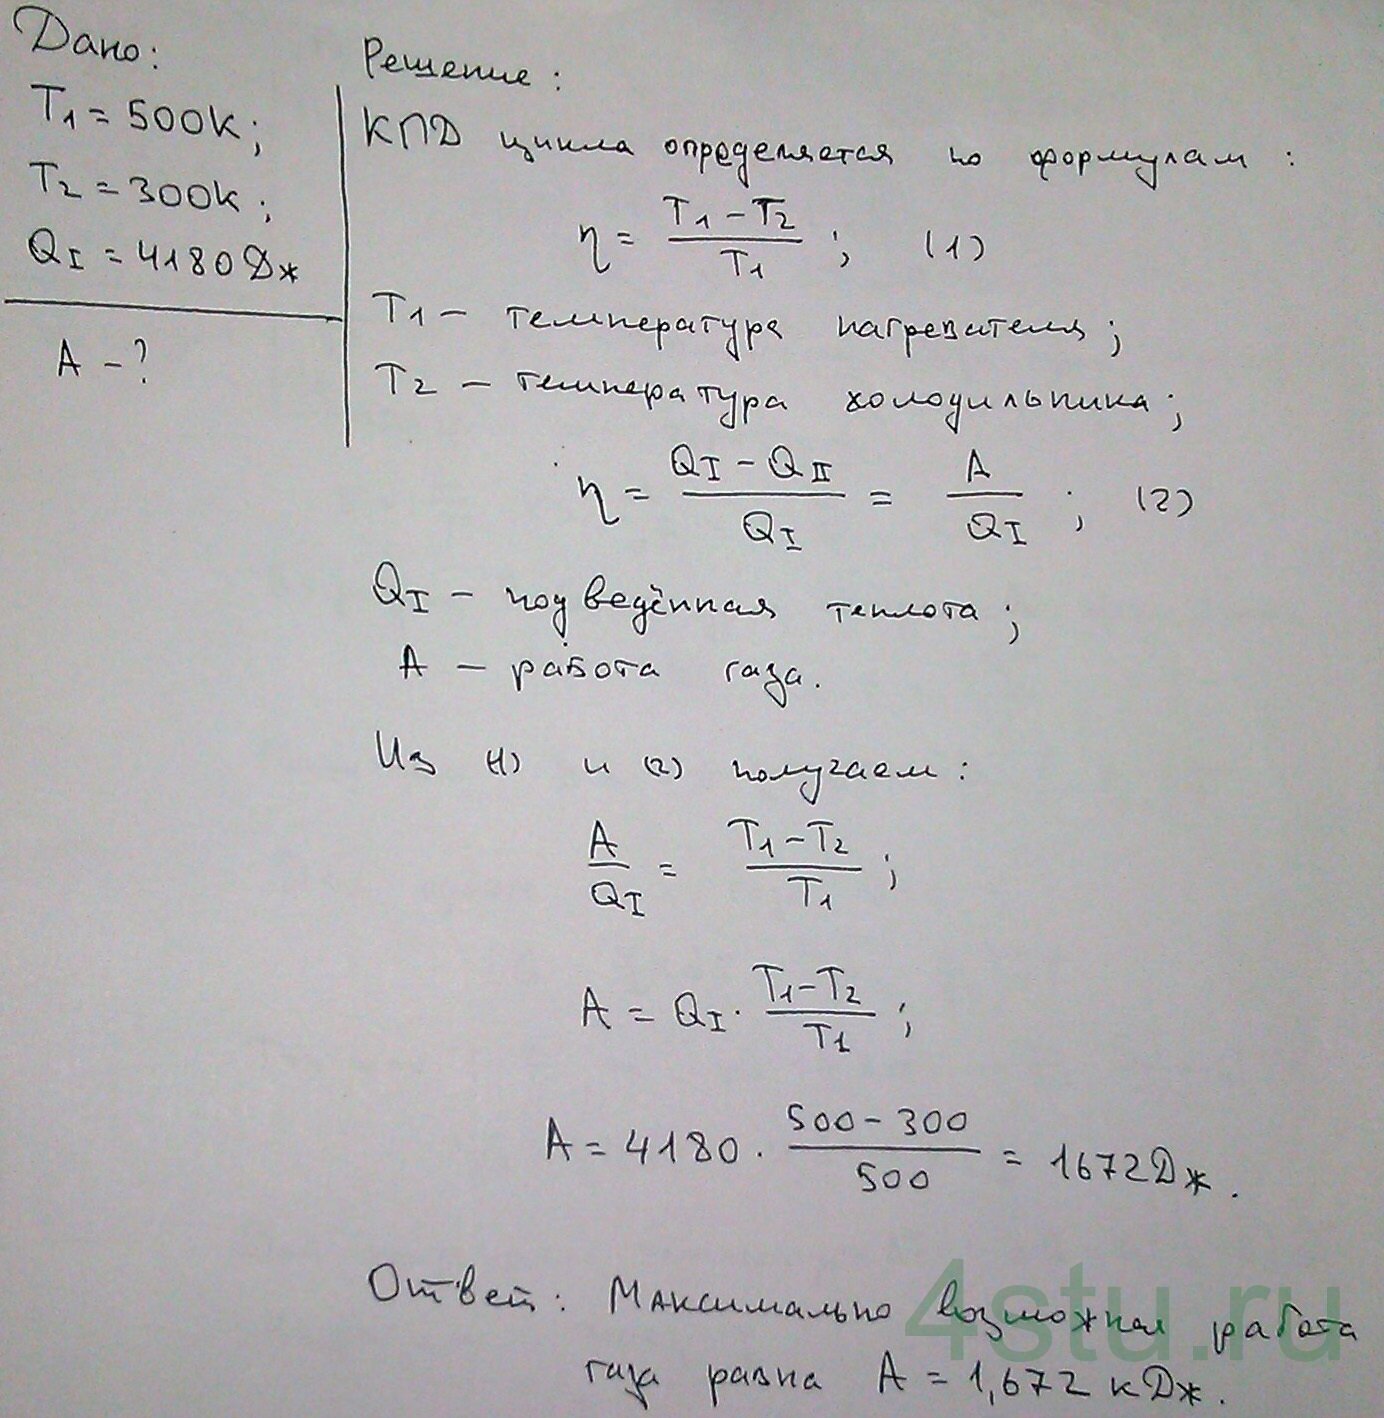 Дано:
T1 = 500К;
T2 = 300К;
QI = 4180 Дж
A - ?
Решение:
КПД цикла определяется по формулам:
η = (T1 - T2) / T1; (1)
T1 - температура нагревателя;
T2 - температура холодильника;
η = (QI - QII) / QI = A / QI; (2)
QI - подведённая теплота;
A - работа газа.
Из (1) и (2) получаем:
A / QI = (T1 - T2) / T1;
A = QI · (T1 - T2) / T1;
A = 4180 · (500 - 300) / 500 = 1672 Дж.
Ответ: Максимально возможная работа
газа равна A = 1,672 кДж.
4stu.ru